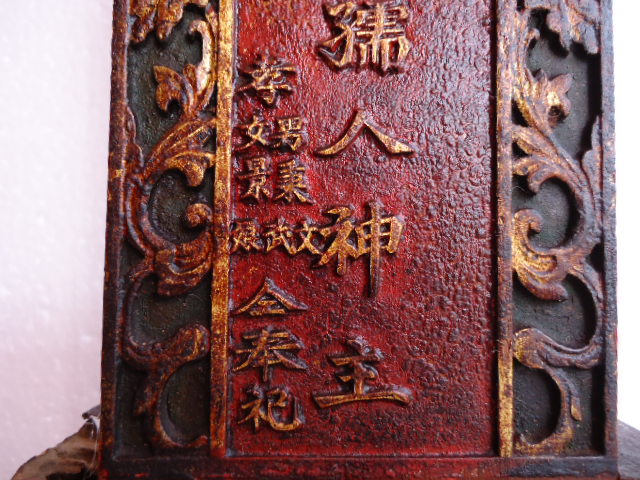 孺人神主
孝
男秉
文景
文武
仝奉祀